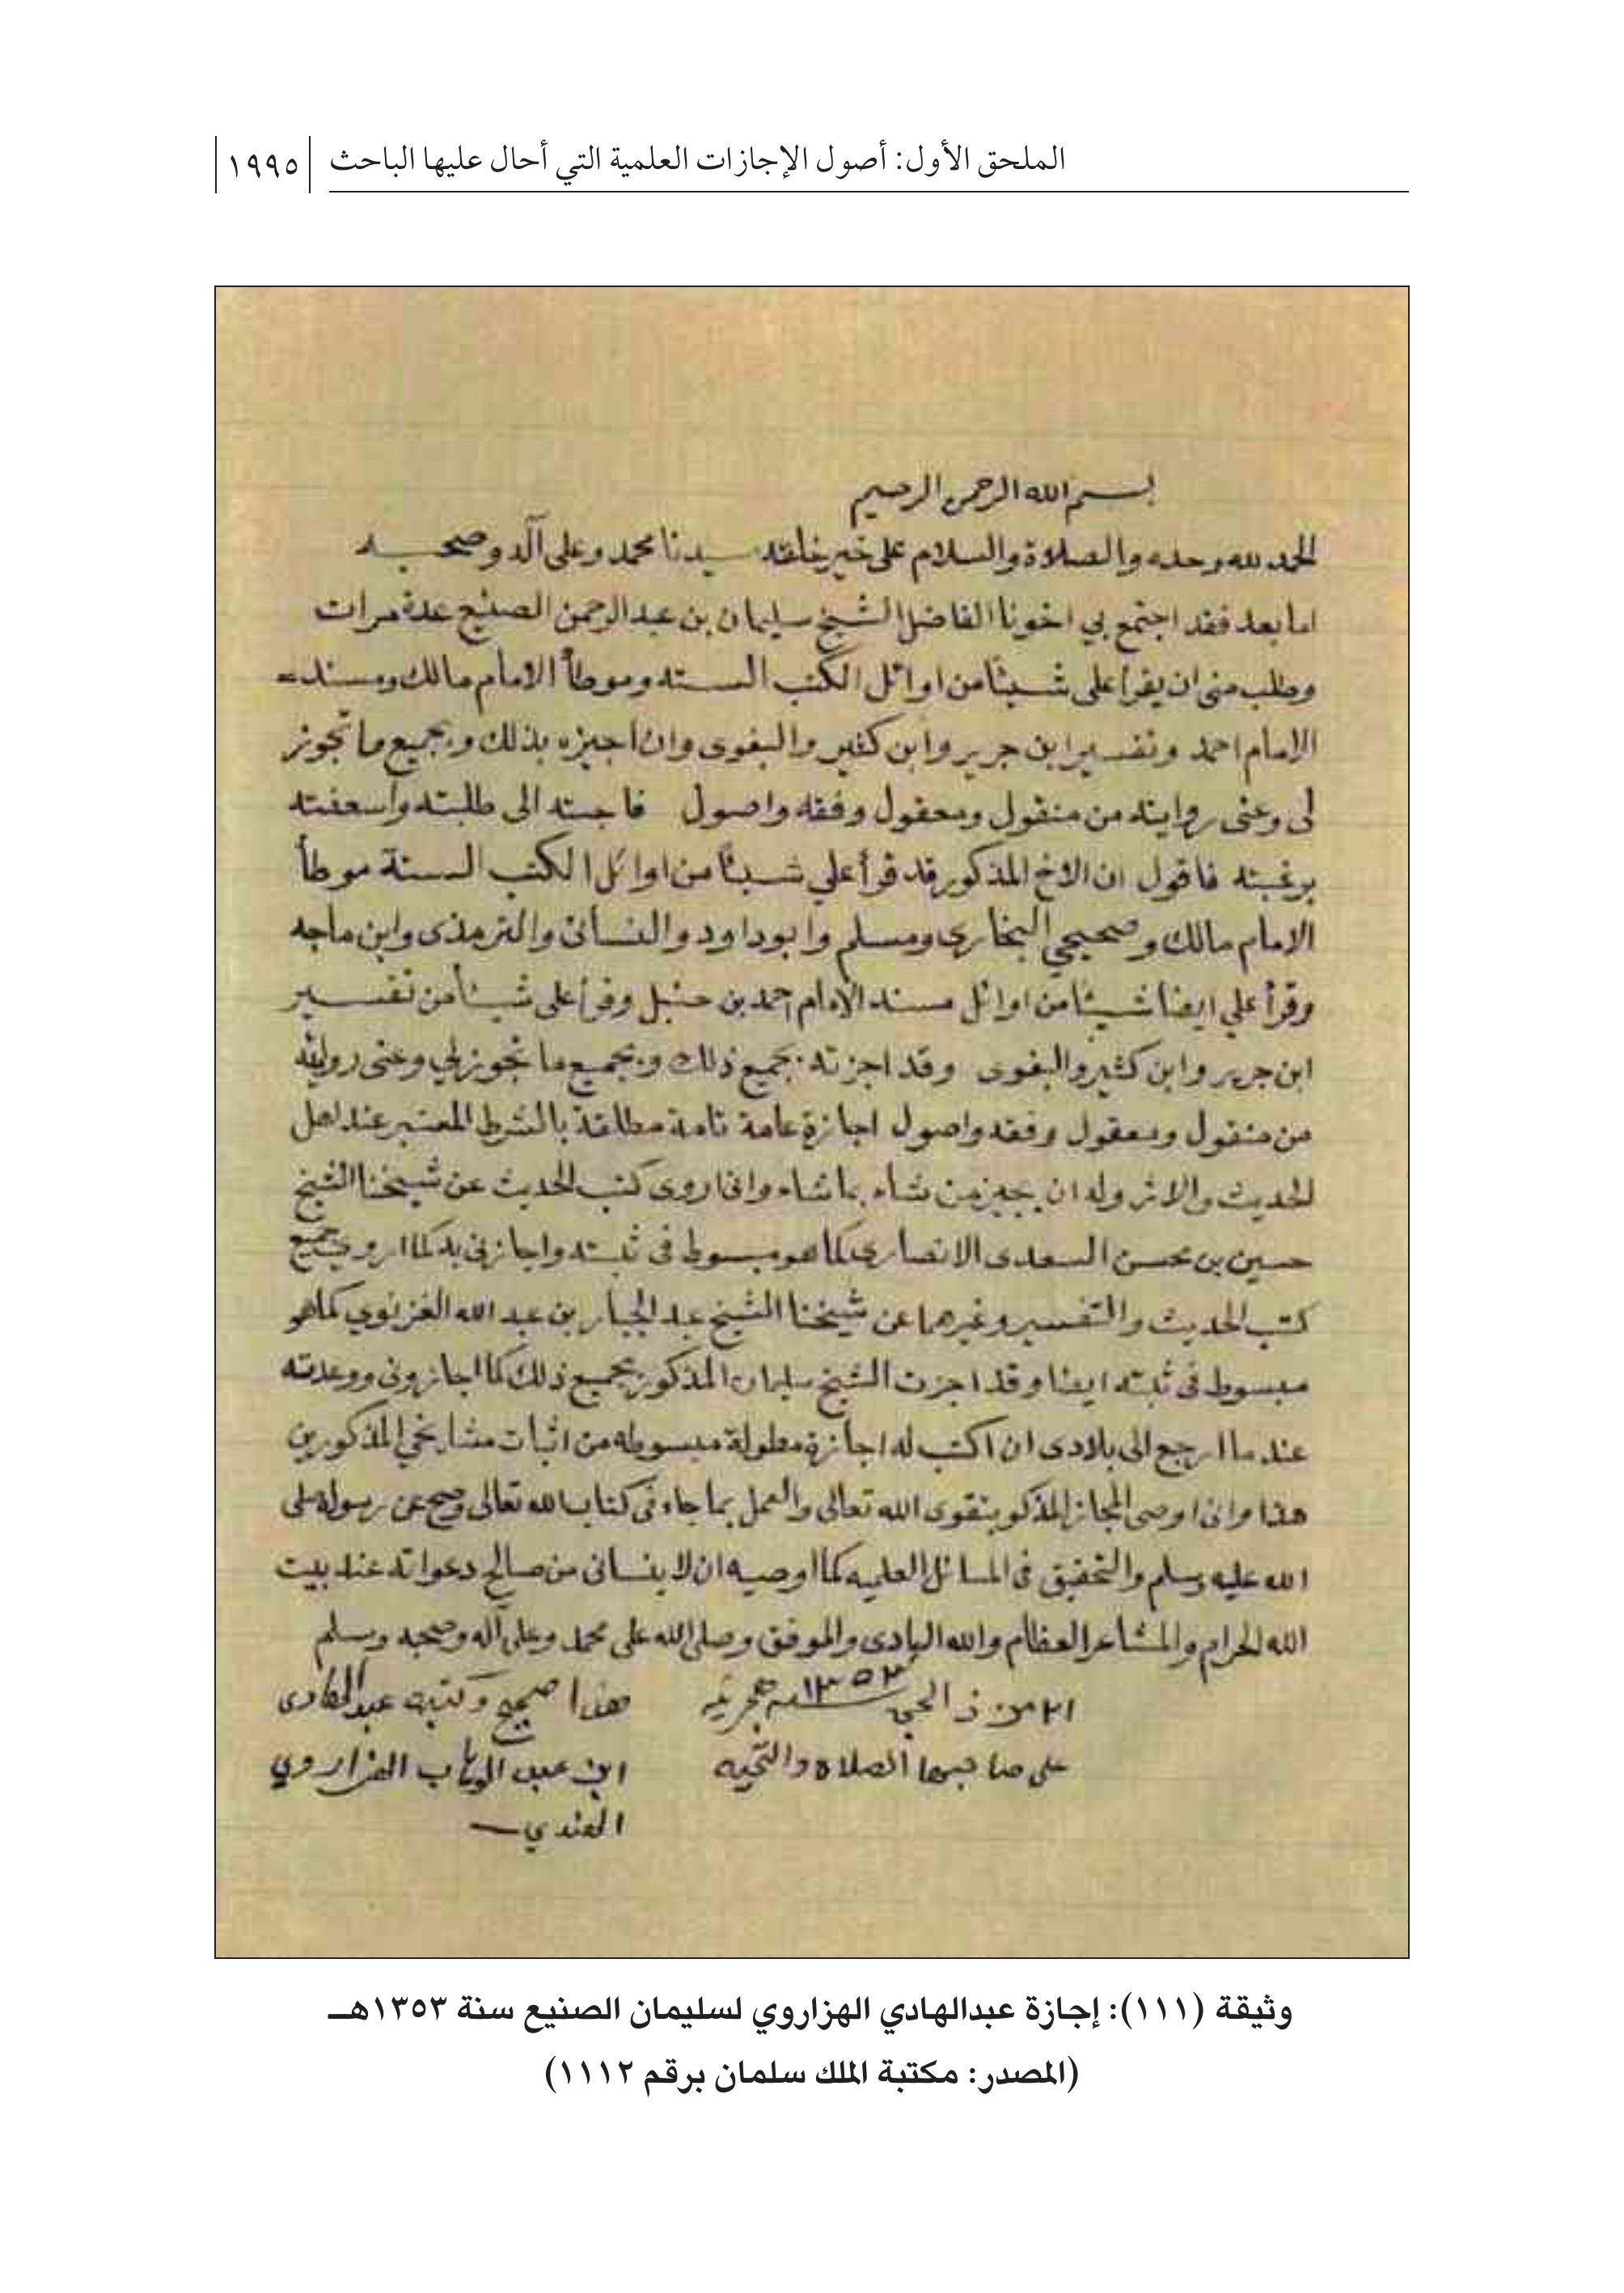 الملحق الأول: أصول الإجازات العلمية التي أحال عليها الباحث ١٩٩٥
بسم الله الرحمن الرحيم
الحمد لله وحده والصلاة والسلام على خير خلقه سيدنا محمد وعلى آله وصحبه
اما بعد فقد اجتمع بي اخونا الفاضل الشيخ سليمان بن عبد الرحمن الصنيع عدة مرات
وطلب منى ان يقرأ على شيئاً من اوائل الكتب السته وموطأ الامام مالك ومسند
الامام احمد وتفسير ابن جرير وابن كثير والبغوى وان اجيزه بذلك وبجميع ما تجوز
لى وعنى روايته من منقول ومعقول وفقه واصول فاجبته الى طلبته واسعفته
برغبته فاقول ان الاخ المذكور قد قرأ علي شيئاً من اوائل الكتب الستة موطأ
الامام مالك وصحيحي البخاري ومسلم وابو داود والنسائى والترمذى وابن ماجه
وقرأ علي ايضا شيئاً من اوائل مسند الامام احمد بن حنبل وقرأ على شيئاً من تفسير
ابن جرير وابن كثير والبغوى وقد اجزته بجميع ذلك وبجميع ما تجوز لي وعنى روايته
من منقول ومعقول وفقه واصول اجازة عامة تامة مطلقة بالشرط المعتبر عند اهل
الحديث والاثر وله ان يجيز من شاء بما شاء وانى اروى كتب الحديث عن شيخنا الشيخ
حسين بن محسن السعدى الانصاري كما هو مبسوط فى ثبته واجازنى به كما اروي جميع
كتب الحديث والتفسير وغيرهما عن شيخنا الشيخ عبد الجبار بن عبد الله الغزنوي كما هو
مبسوط فى ثبته ايضا وقد اجزت الشيخ سليمان المذكور بجميع ذلك كما اجازونى ووعدته
عند ما ارجع الى بلادى ان اكتب له اجازة مطولة مبسوطه من اثبات مشايخي المذكورين
هذا وانى اوصى المجاز المذكور بتقوى الله تعالى والعمل بما جاء فى كتاب الله تعالى وصح عن رسوله صلى
الله عليه وسلم والتحقيق فى المسائل العلميه كما اوصيه ان لا ينسانى من صالح دعواته عند بيت
الله الحرام والمشاعر العظام والله الهادى والموفق وصلى الله على محمد وعلى آله وصحبه وسلم
٢١ من ذ الحجه ١٣٥٣ هجريه
على صاحبها الصلاة والتحيه
هذا صحيح وكتبه عبد الهادى
ابن عبد الوهاب الهزاروي
الهندي
وثيقة (١١١): إجازة عبدالهادي الهزاروي لسليمان الصنيع سنة ١٣٥٣هـ
(المصدر: مكتبة الملك سلمان برقم ١١١٢)